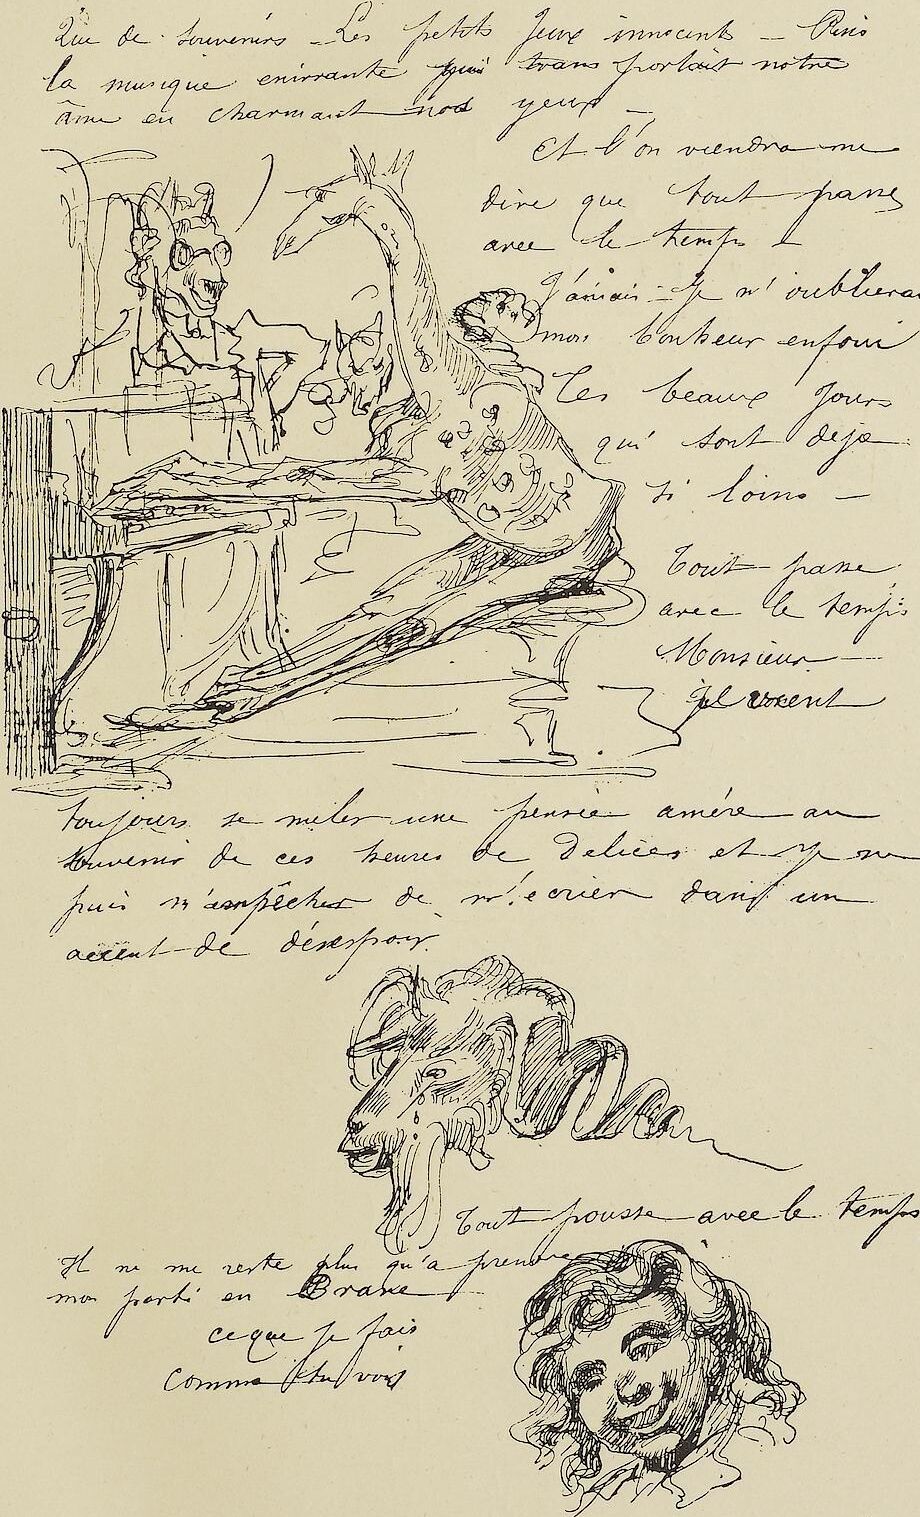 Que de souvenirs - Les petits Jeux innocents - Puis
la musique enivrante qui transportait notre
âme en charmant nos yeux -
Et l'on viendra me
dire que tout passe
avec le temps -
Jamais - Je n'oublierai
mon bonheur enfoui
Les beaux Jours
qui sont deja
si loins -
Tout passe
avec le temps
Monsieur -
Il vient
toujours se mêler une pensée amère au
souvenir de ces heures de Delices et Je ne
puis m'empêcher de m'écrier dans un
accent de désespoir
Tout pousse avec le temps
Il ne me reste plus qu'a prendre
mon parti en Brave
ce que je fais
comme tu vois